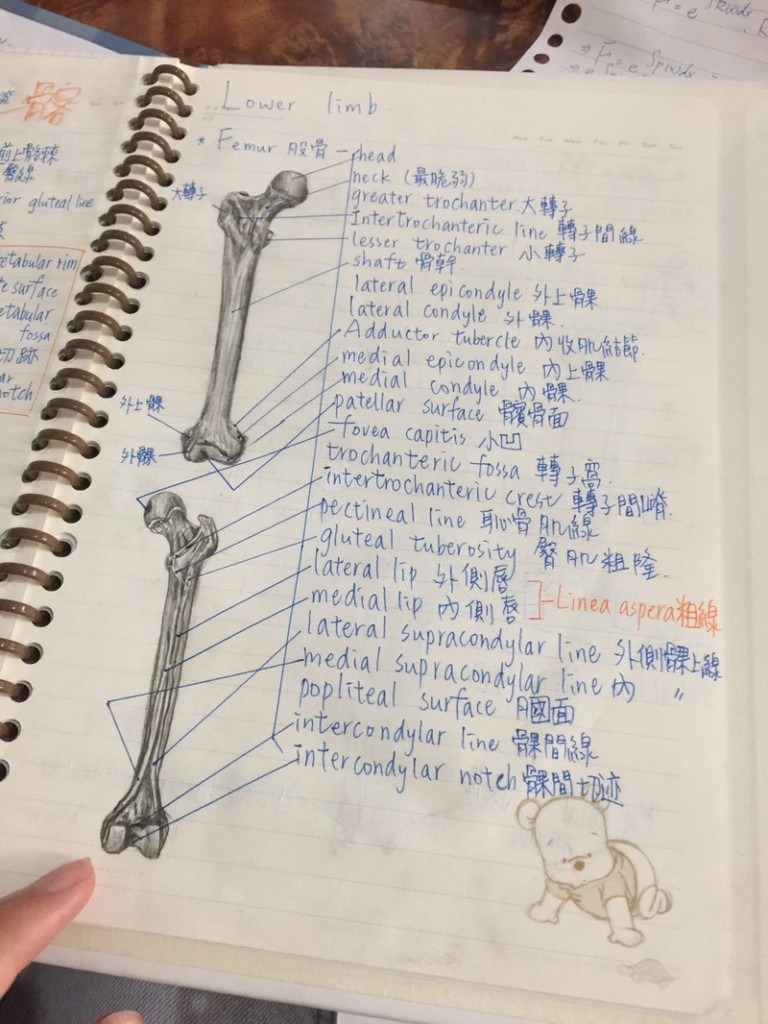 髂窩
前上髂棘
臀線
rior gluteal line
etabular rim
te surface
etabular
fossa
切跡
ar
notch
Lower limb
* Femur 股骨 — head
neck (最脆弱)
大轉子
greater trochanter 大轉子
Intertrochanteric line 轉子間線
lesser trochanter 小轉子
shaft 骨幹
lateral epicondyle 外上髁
lateral condyle 外髁
Adductor tubercle 內收肌結節
medial epicondyle 內上髁
medial condyle 內髁
patellar surface 髕骨面
外上髁
外髁
fovea capitis 小凹
trochanteric fossa 轉子窩
intertrochanteric crest 轉子間嵴
pectineal line 恥骨肌線
gluteal tuberosity 臀肌粗隆
lateral lip 外側唇
medial lip 內側唇
Linea aspera 粗線
lateral supracondylar line 外側髁上線
medial supracondylar line 內 〃
popliteal surface 膕面
intercondylar line 髁間線
intercondylar notch 髁間切迹